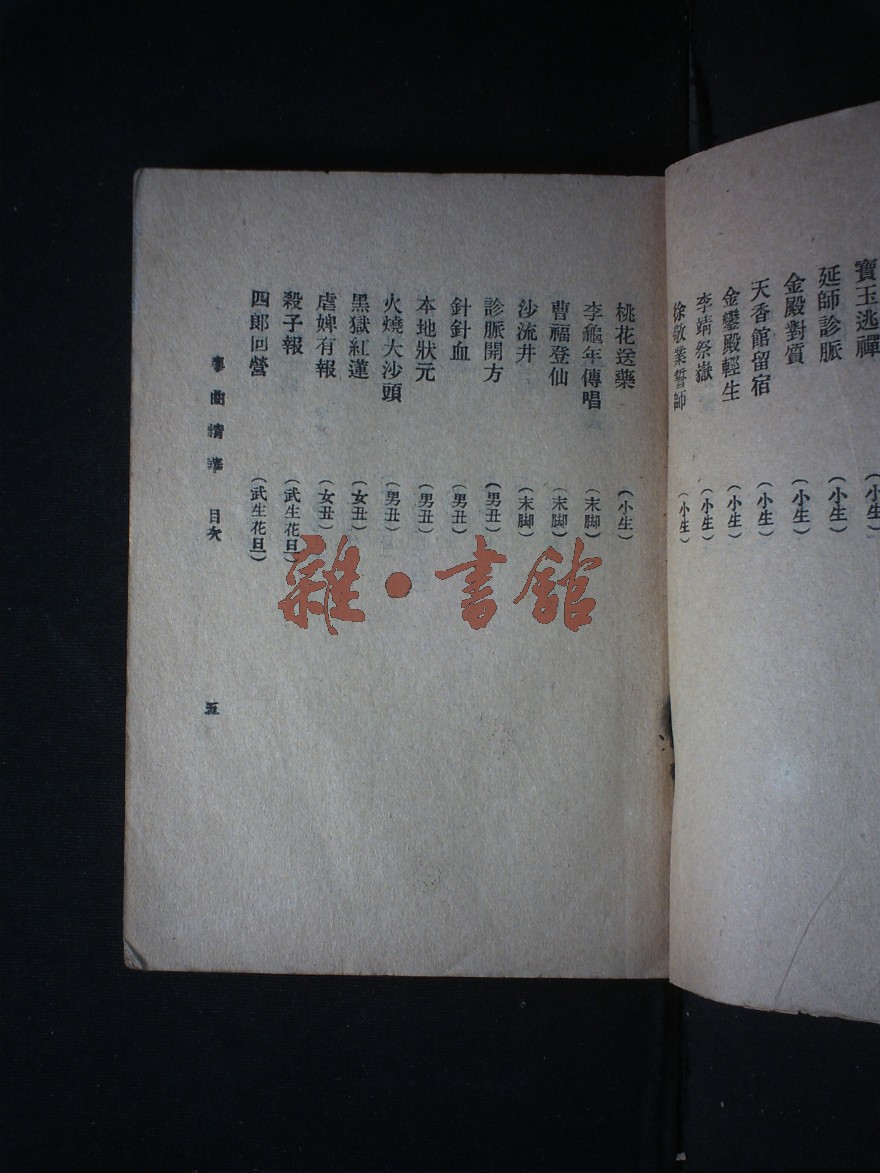 寶玉逃禪 (小生)
延師診脈 (小生)
金殿對質 (小生)
天香館留宿 (小生)
金鑾殿輕生 (小生)
李靖祭嶽 (小生)
徐敬業誓師 (小生)
桃花送藥 (小生)
李龜年傳唱 (末脚)
曹福登仙 (末脚)
沙流井 (末脚)
診脈開方 (男丑)
針針血 (男丑)
本地狀元 (男丑)
火燒大沙頭 (男丑)
黑獄紅蓮 (女丑)
虐婢有報 (女丑)
殺子報 (武生花旦)
四郎回營 (武生花旦)
粵曲精華 目次 五
雜·書館